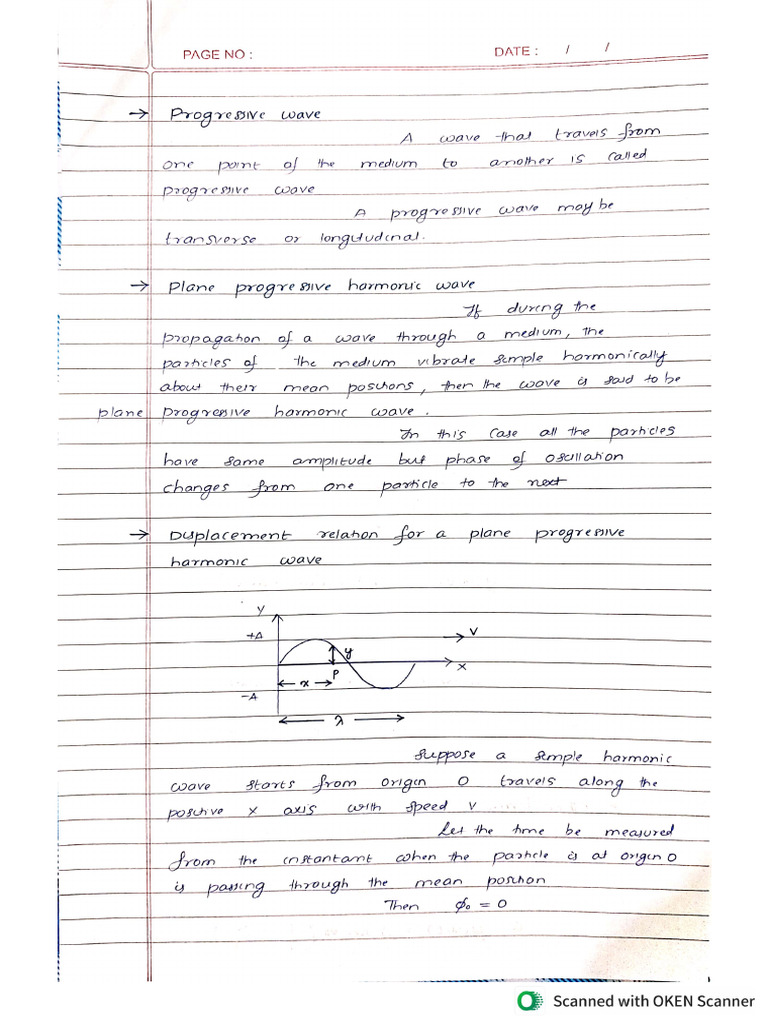 PAGE NO :
DATE : / /
→ Progressive wave
A wave that travels from
one point of the medium to another is called
progressive wave
A progressive wave may be
transverse or longitudinal.
→ Plane progressive harmonic wave
If during the
propagation of a wave through a medium, the
particles of the medium vibrate simple harmonically
about their mean positions, then the wave is said to be
plane progressive harmonic wave.
In this case all the particles
have same amplitude but phase of oscillation
changes from one particle to the next
→ Displacement relation for a plane progressive
harmonic wave
Y
+A
V
y
X
P
x
-A
λ
Suppose a simple harmonic
wave starts from origin O travels along the
positive X axis with speed V
Let the time be measured
from the instantant when the particle is at origin O
is passing through the mean position
Then ϕ₀ = 0
Scanned with OKEN Scanner